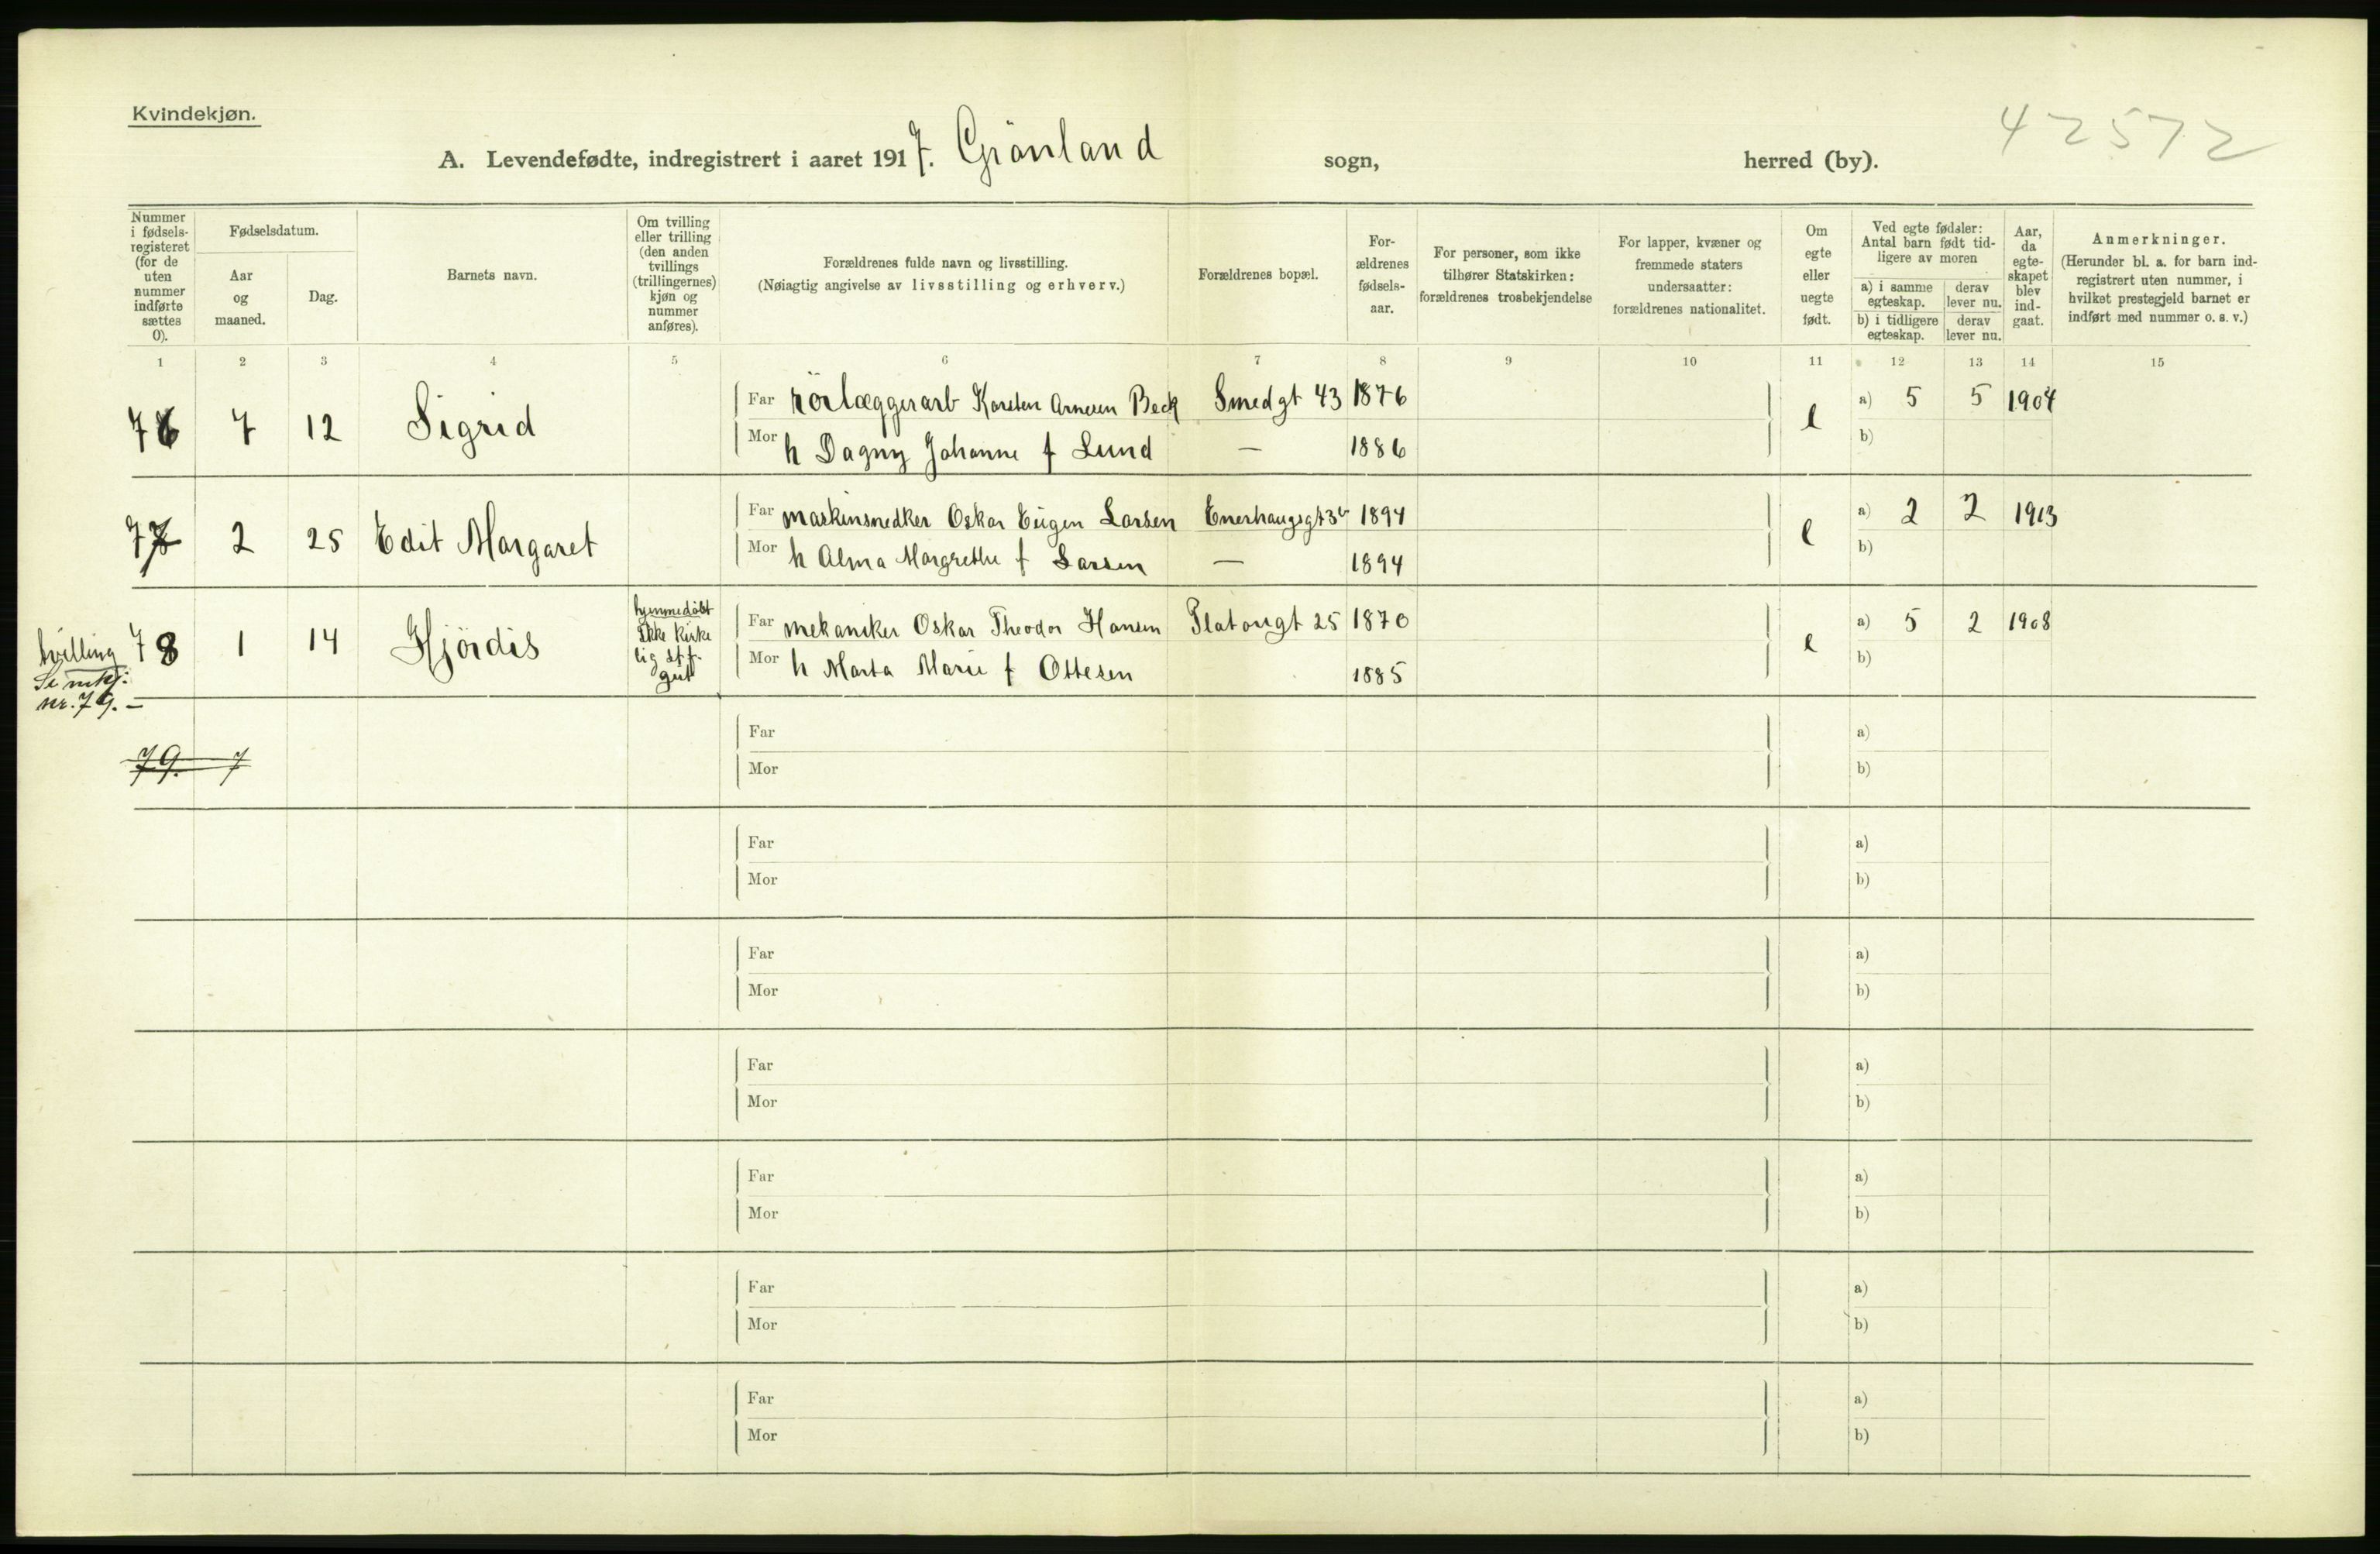 Kvindekjøn.
42572
A. Levendefødte, indregistrert i aaret 1917. Grönland sogn, herred (by).
Nummer i fødsels-registeret (for de uten nummer indførte sættes 0).
Fødselsdatum.
Aar og maaned.
Dag.
Barnets navn.
Om tvilling eller trilling (den anden tvillings (trillingernes) kjøn og nummer anføres).
Forældrenes fulde navn og livsstilling.
(Nøiagtig angivelse av livsstilling og erhverv.)
Forældrenes bopæl.
For-ældrenes fødsels-aar.
For personer, som ikke tilhører Statskirken: forældrenes trosbekjendelse
For lapper, kvæner og fremmede staters undersaatter: forældrenes nationalitet.
Om egte eller uegte født.
Ved egte fødsler: Antal barn født tid-ligere av moren
a) i samme egteskap.
derav lever nu.
b) i tidligere egteskap.
derav lever nu.
Aar, da egte-skapet blev ind-gaat.
Anmerkninger.
(Herunder bl. a. for barn ind-registrert uten nummer, i hvilket prestegjeld barnet er indført med nummer o. s. v.)
1 2 3 4 5 6 7 8 9 10 11 12 13 14 15
76 7 12 Sigrid Far rörlæggerarb Karsten Arnesen Beck Smedgt 43 1876 e a) 5 5 1904
Mor h Dagny Johanne f Lund — 1886 b)
77 2 25 Edit Margaret Far maskinsnedker Oskar Eugen Larsen Enerhaugsgt 1894 e a) 2 2 1913
Mor h Alma Margrethe f Larsen — 1894 b)
tvilling 78 1 14 Hjördis hjemmedöbt ikke kirkelig st.f. gut Far mekaniker Oskar Theodor Hansen Platougt 25 1870 e a) 5 2 1908
Se mkj: nr. 79. — Mor h Marta Marie f Ottesen 1885 b)
79. 7 Far a)
Mor b)
Far a)
Mor b)
Far a)
Mor b)
Far a)
Mor b)
Far a)
Mor b)
Far a)
Mor b)
Far a)
Mor b)